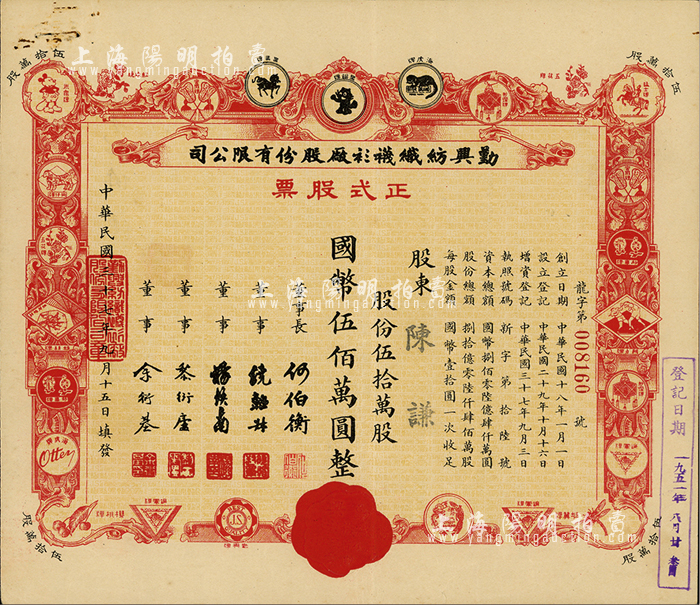 上海陽明拍賣
www.yangmingauction.com
伍拾萬股
伍拾萬股
勤興紡織襪衫廠股份有限公司
正式股票
龍字第008160號
創立日期 中華民國十八年一月一日
設立登記 中華民國二十九年十月十六日
增資登記 中華民國三十七年九月三日
執照號碼 新字第拾陸號
資本總額 國幣捌佰零陸億肆仟萬圓
股份總額 捌拾億零陸仟肆佰萬股
每股金額 國幣壹拾圓一次收足
股東 陳謙
股份伍拾萬股
國幣伍佰萬圓整
董事長 何伯衡
董事
董事
董事 黎衍廑
董事 余衍基
中華民國三十七年九月十五日填發
登記日期
一九五一年八月廿
Otter
伍拾萬股
伍拾萬股
上海陽明拍賣
www.yangmingauction.com
上海陽明拍賣
www.yangmingauction.com